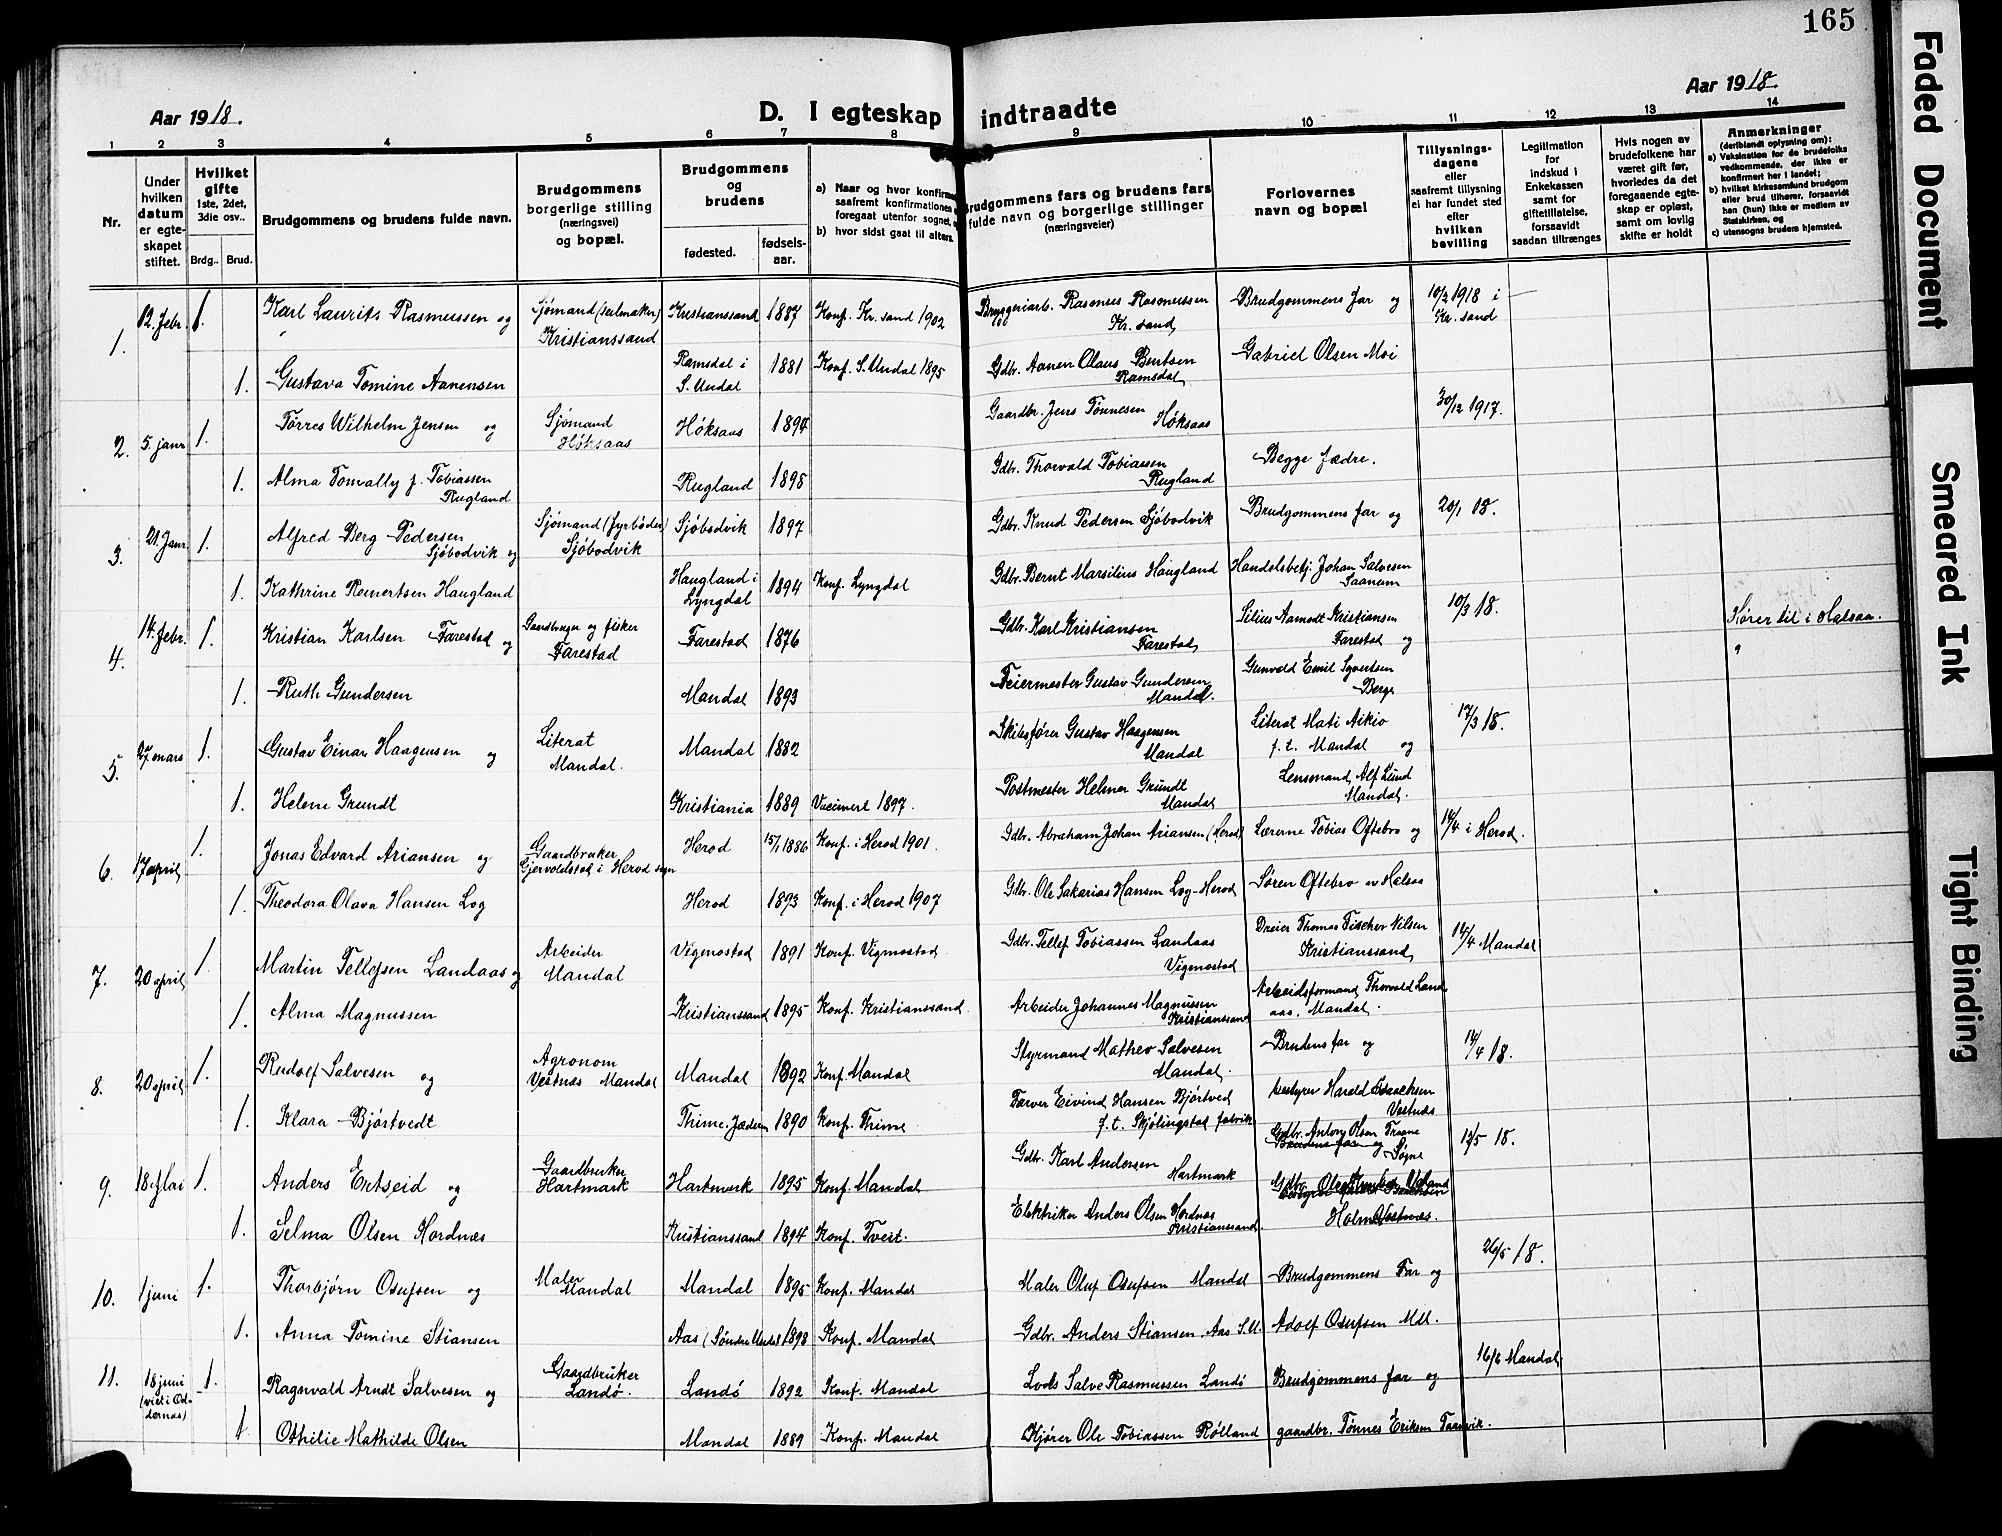 165
Aar 1918.
D. I egteskap indtraadte
Aar 1918.
1 2 3 4 5 6 7 8 9 10 11 12 13 14
Nr.
Under hvilken datum er egteskapet stiftet.
Hvilket gifte 1ste, 2det, 3die osv..
Brdg.. Brud.
Brudgommens og brudens fulde navn.
Brudgommens borgerlige stilling (næringsvei) og bopæl.
Brudgommens og brudens
fødested. fødselsaar.
a) Naar og hvor konfirm saafremt konfirmationen foregaat utenfor sognet,
b) hvor sidst gaat til alters.
Brudgommens fars og brudens fars fulde navn og borgerlige stillinger (næringsveier)
Forlovernes navn og bopæl
Tillysningsdagene eller saafremt tillysning ei har fundet sted efter hvilken bevilling
Legitimation for indskud i Enkekassen samt for giftetillatelse, forsaavidt saadan tiltrænges
Hvis nogen av brudefolkene har været gift før, hvorledes da det foregaaende egteskap er opløst, samt om lovlig skifte er holdt
Anmerkninger (deriblandt oplysning om):
a) Vaksination for de brudefolks vedkommende, der ikke er konfirmert her i landet;
b) hvilket kirkesamfund brudgom eller brud tilhører, forsaavidt han (hun) ikke er medlem av Statskirken, og
c) utensogns bruders hjemsted.
1. 12. febr. 1. Karl Laurits Rasmussen og Sjømand (seilmaker) Kristianssand Kristianssand 1887 Konf. Kr.sand 1902 Bryggeriarb. Rasmus Rasmussen Kr.sand Brudgommens far og 10/2 1918 i Kr.sand
1. Gustava Tomine Aanensen Ramsdal i S. Undal 1881 Konf. S. Undal 1895 Gdbr. Aanen Olaus Bentsen Ramsdal Gabriel Olsen Moi
2. 5. janr 1. Tørres Wilhelm Jensen og Sjømand Høksaas Høksaas 1894 Gaardbr. Jens Tønnesen Høksaas 30/12 1917.
1. Alma Tomally f. Tobiassen Rugland Rugland 1898 Gdbr. Thorvald Tobiassen Rugland Begge fædre.
3. 21. janr 1. Alfred Berg Pedersen Sjøbodvik og Sjømand (fyrbøder) Sjøbodvik Sjøbodvik 1897 Gdbr. Knud Pedersen Sjøbodvik Brudgommens far og 20/1 18.
1. Kathrine Reinertsen Haugland Haugland i Lyngdal 1894 Konf. Lyngdal Gdbr. Bernt Marsilius Haugland Handelsbetj. Johan Salvesen Saanum
4. 14. febr. 1. Kristian Karlsen Farestad og Gaardbruger og fisker Farestad Farestad 1876 Gdbr. Karl Kristiansen Farestad Silius Aamodt Kristiansen Farestad og 10/3 18. Hører til i Halsaa.
1. Ruth Gundersen Mandal 1893 Feiermester Gustav Gundersen Mandal. Gunvald Emil Syvertsen Berge
5. 27 mars 1. Gustav Einar Haagensen og Literat Mandal. Mandal 1882 Skibsfører Gustav Haagensen Mandal Literat Mati Aikio f. t. Mandal og 17/3 18.
1. Helene Grundt Kristiania 1889 Vaccinert 1897. Postmester Helmer Grundt Mandal Lensmand Alf Lund Mandal.
6. 17 april 1. Jonas Edvard Ariansen og Gaardbruker Gjervoldstad i Herod sogn Herod 15/1 1886 Konf. i Herod 1901. Gdbr. Abraham Johan Ariansen (Herod) Lærerne Tobias Oftebro og 14/4 i Herod.
1. Theodora Olava Hansen Log Herod 1893 Konf. i Herod 1907 Gdbr. Ole Sakarias Hansen Log-Herod Søren Oftebro av Halsaa
7. 20 april 1. Martin Tellefsen Landaas og Arbeider Mandal Vigmostad 1891 Konf. Vigmostad Gdbr. Tellef Tobiassen Landaas Vigmostad Dreier Thomas Fischer Nilsen Kristianssand 14/4 Mandal
1. Alma Magnussen Kristianssand 1895 Konf. Kristianssand. Arbeider Johannes Magnussen Kristianssand Arbeidsformand Thorvald Landaas, Mandal.
8. 20 april 1. Rudolf Salvesen og Agronom Vestnæs Mandal Mandal 1892 Konf. Mandal Styrmand Matheo Salvesen Mandal. Brudens far og 14/4 18.
1. Klara Bjørtvedt Thime, Jæderen 1890 Konf. Thime Farver Eivind Hansen Bjørtved f. t. Skjølingstad fabrik Bestyrer Harald Isaacksen Vestnæs
9. 18 Mai 1. Anders Ertseid og Gaardbruker Hartmark Hartmark 1895 Konf. Mandal Gdbr. Karl Andersen Hartmark Gdbr. Antony Olsen Traane Søgne Brudens far og 12/5 18.
1. Selma Olsen Hordnæs Kristianssand 1894 Konf. Tveit. Elektriker Anders Olsen Hordnæs Kristianssand. Gdbr. Ole Holm Vestnæs.
10. 1 juni 1. Thorbjørn Osufsen og Maler Mandal Mandal 1895 Konf. Mandal Maler Oluf Osufsen Mandal Brudgommens Far og 26/5 18.
1. Anna Tomine Stiansen Aas (Søndre Undal) 1898 Konf. Mandal Gdbr. Anders Stiansen, Aas S. U. Adolf Osufsen Mdl.
11. 18 juni (viet i Oddernas) 1. Ragnvald Arndt Salvesen og Gaardbruker Landø. Landø 1892 Konf. Mandal Lods Salve Rasmussen Landø Brudgommens far og 16/6 Mandal
1 Othilie Mathilde Olsen Mandal 1889 Konf. Mandal Kjører Ole Tobiassen Rølland gaardbr. Tønnes Eriksen Taanevik.
Faded Document
Smeared Ink
Tight Binding